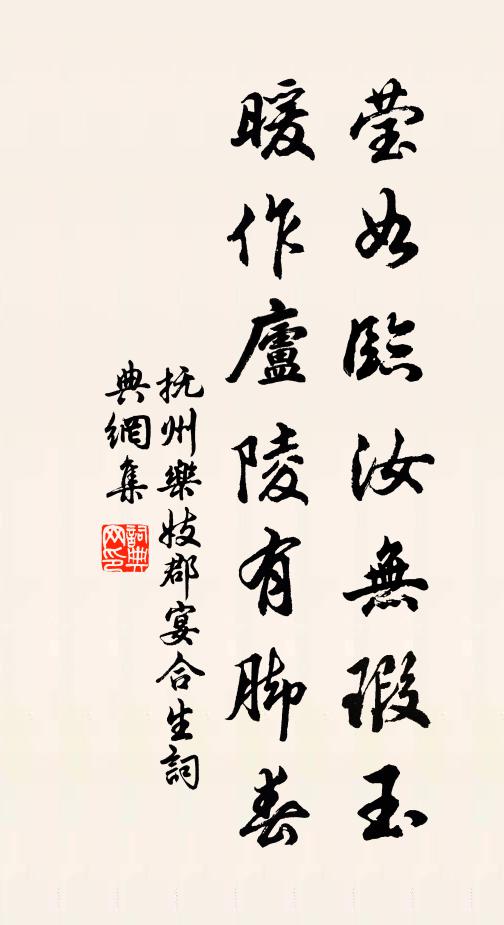 瑩如臨汝無瑕玉
暖作廬陵有脚春
抚州樂妓郡宴合生詞
典網集
詞典网印